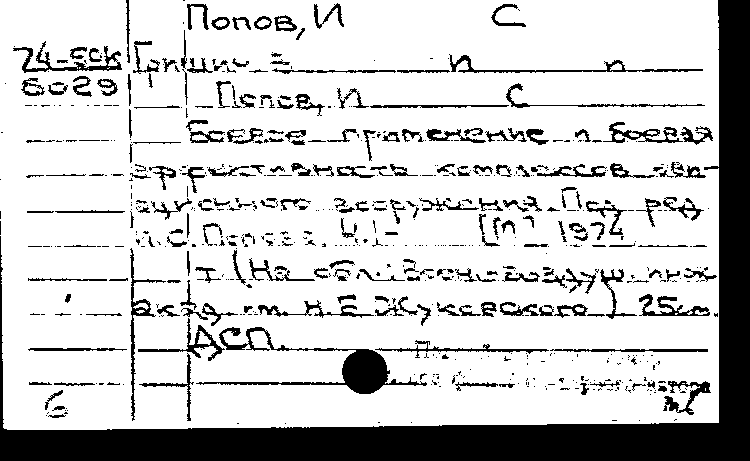 Попов, И С
74-5ск Гришин Е И П
6029 Попов, И С
Боевое применение и боевая
эффективность комплексов ави-
ационного вооружения. Под ред
И.С. Попова. Ч.1- [М] 1974
т (На обл.: Воен.-воздуш. инж
акад. им. Н.Е Жуковского) 25см.
ДСП.
6